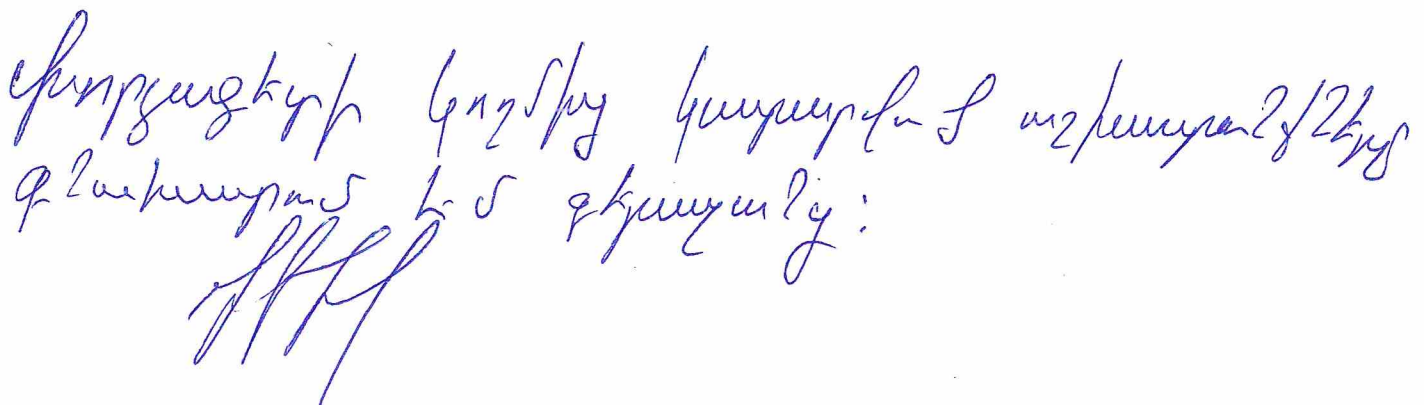 Փորձագետի կողմից կատարված աշխատանքները
գնահատում եմ գերազանց: